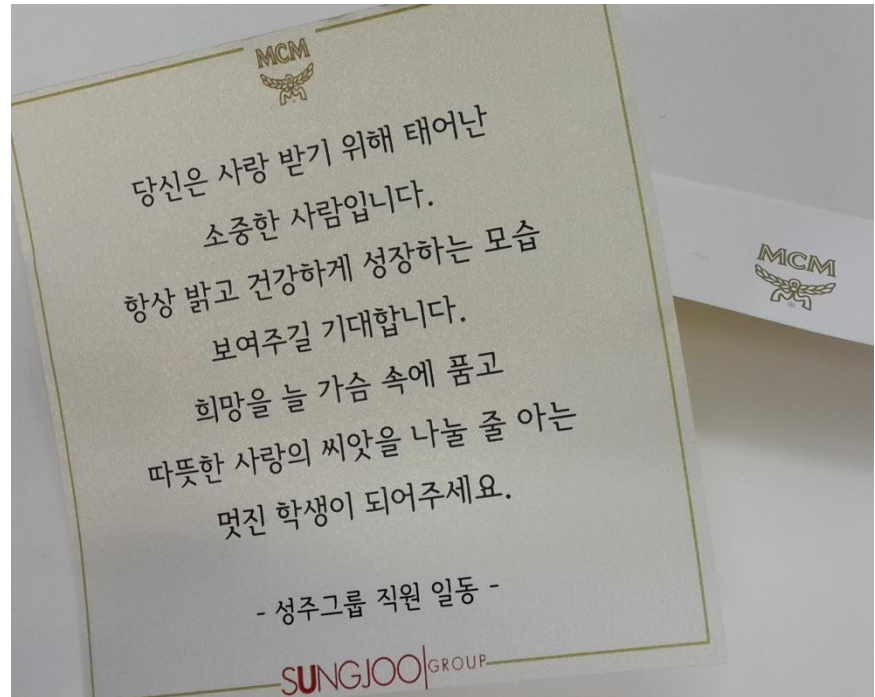 MCM
당신은 사랑 받기 위해 태어난
소중한 사람입니다.
항상 밝고 건강하게 성장하는 모습
보여주길 기대합니다.
희망을 늘 가슴 속에 품고
따뜻한 사랑의 씨앗을 나눌 줄 아는
멋진 학생이 되어주세요.
- 성주그룹 직원 일동 -
SUNGJOO GROUP
MCM